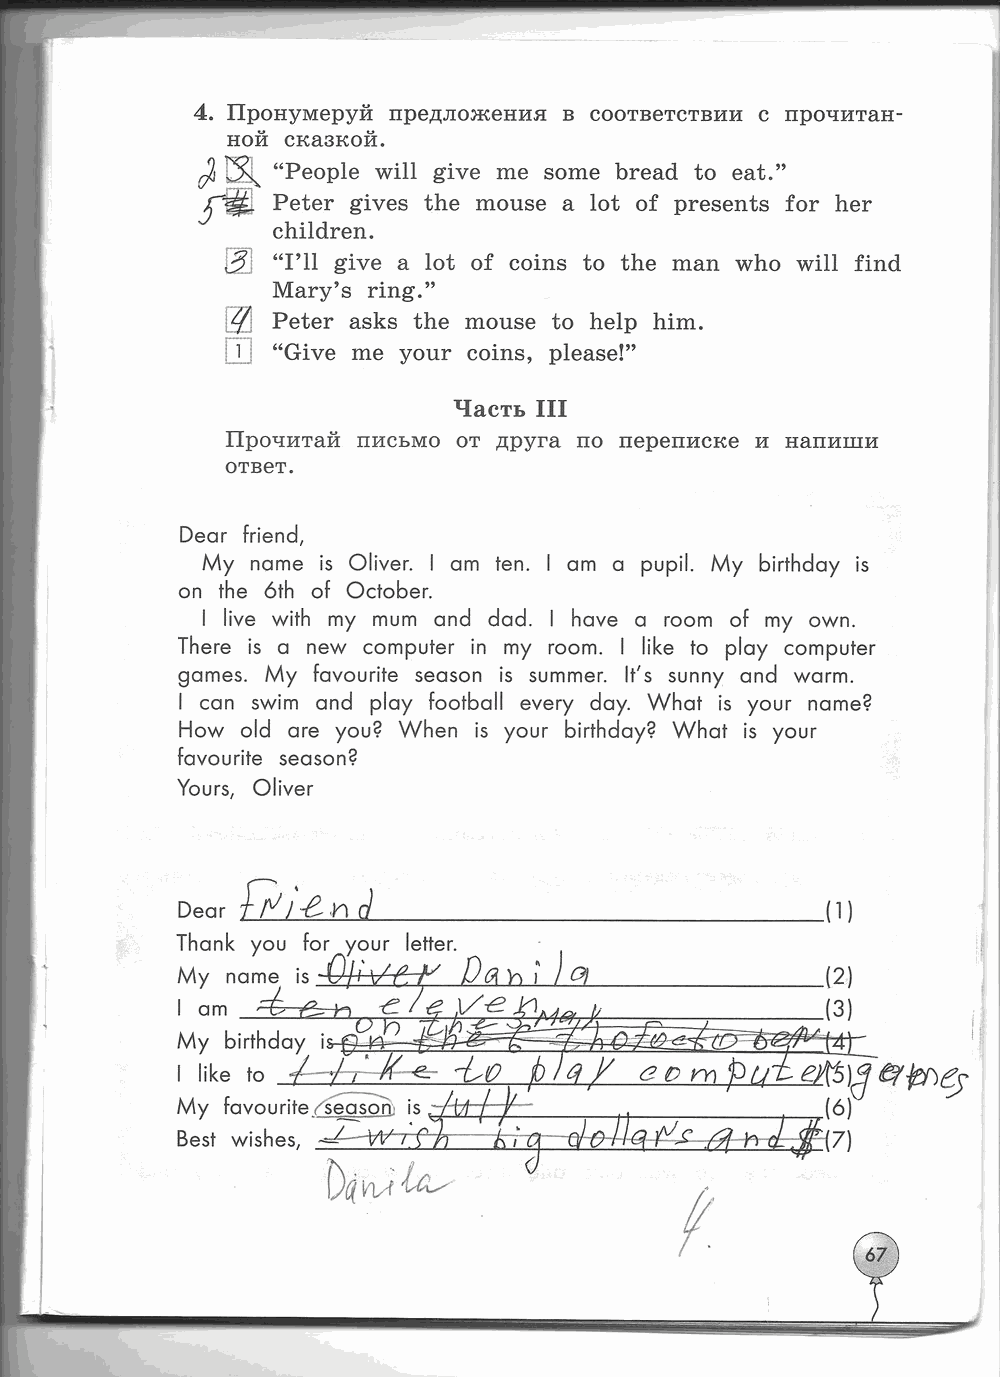 4. Пронумеруй предложения в соответствии с прочитан-
ной сказкой.
2 3 “People will give me some bread to eat.”
5 Peter gives the mouse a lot of presents for her
children.
3 “I’ll give a lot of coins to the man who will find
Mary’s ring.”
4 Peter asks the mouse to help him.
1 “Give me your coins, please!”
Часть III
Прочитай письмо от друга по переписке и напиши
ответ.
Dear friend,
My name is Oliver. I am ten. I am a pupil. My birthday is
on the 6th of October.
I live with my mum and dad. I have a room of my own.
There is a new computer in my room. I like to play computer
games. My favourite season is summer. It’s sunny and warm.
I can swim and play football every day. What is your name?
How old are you? When is your birthday? What is your
favourite season?
Yours, Oliver
Dear Friend (1)
Thank you for your letter.
My name is Oliver Danila (2)
I am ten eleven (3)
on the 3 May
My birthday is on the 6 th of october (4)
I like to I like to play computer (5) games
My favourite season is July (6)
Best wishes, I wish big dollars and $ (7)
Danila
4.
67